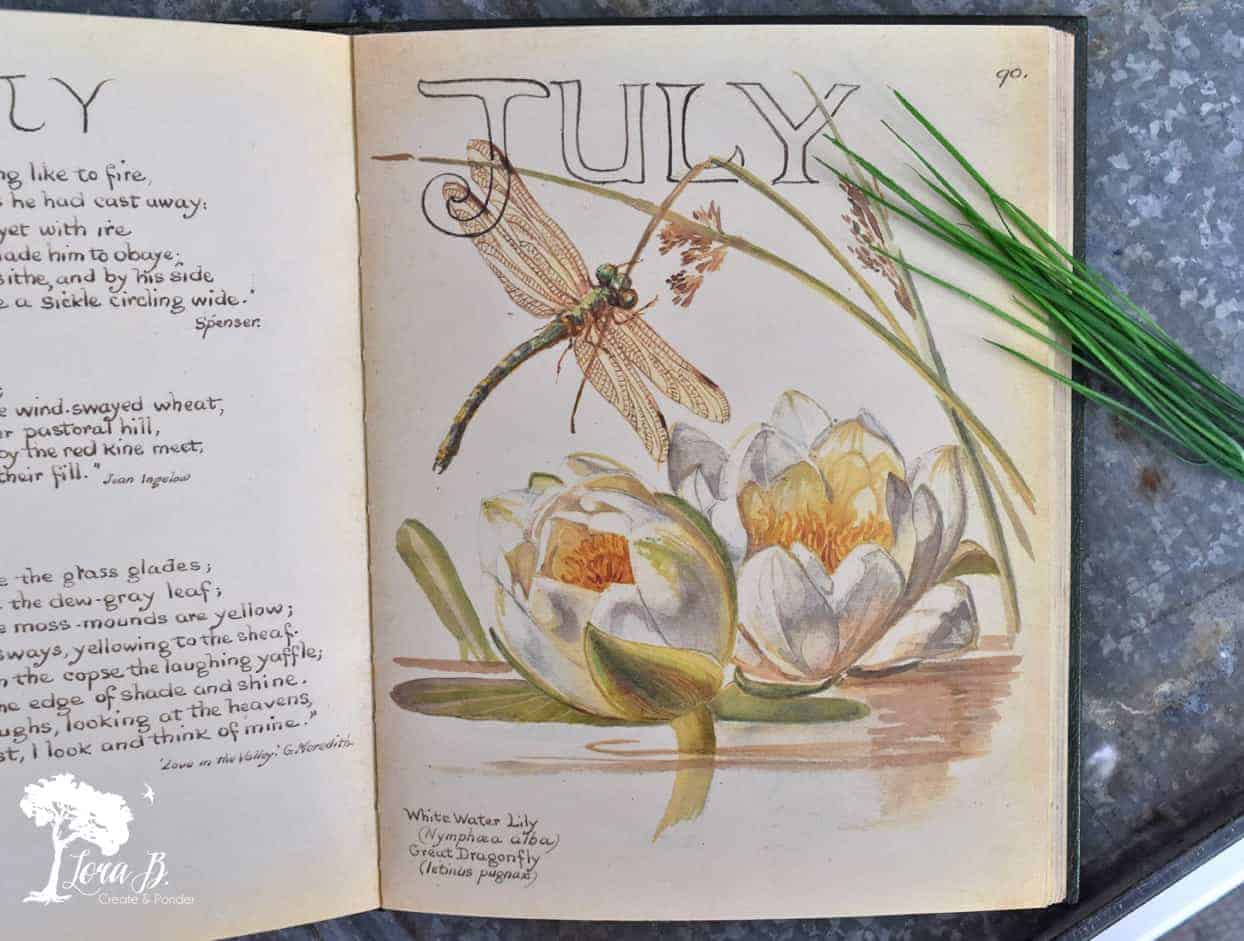 LY
ng like to fire,
s he had cast away:
yet with ire
made him to obaye;
sithe, and by his side
e a sickle circling wide."
Spenser.
e wind-swayed wheat,
er pastoral hill,
by the red kine meet,
their fill." Jean Ingelow
e the grass glades;
the dew-gray leaf;
e moss-mounds are yellow;
sways, yellowing to the sheaf.
n the copse the laughing yaffle;
he edge of shade and shine.
ughs, looking at the heavens,
st, I look and think of mine."
'Love in the Valley'. G. Meredith.
Lora B.
Create & Ponder
JULY
90.
White Water Lily
(Nymphæa alba)
Great Dragonfly
(Ictinus pugnax)